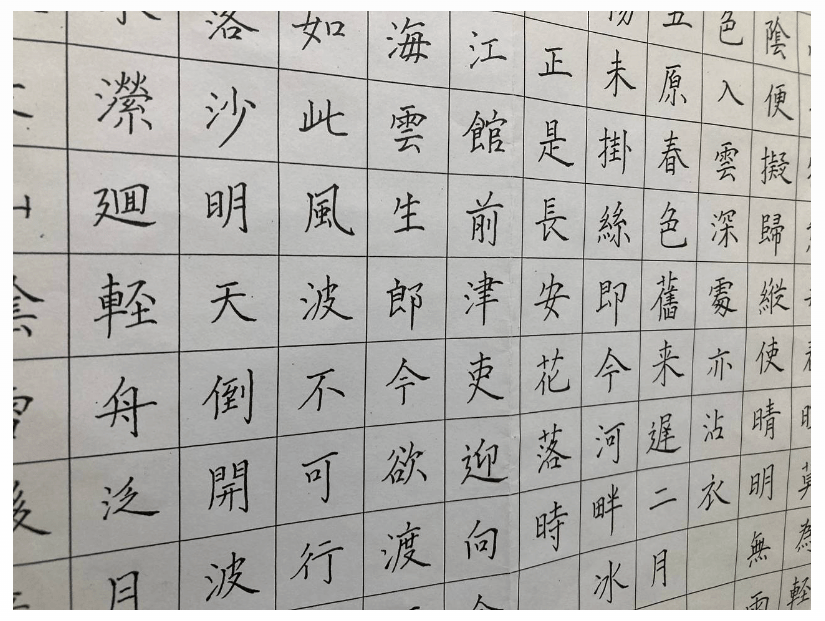 為輕
陰便擬歸縱使晴明無雨
色入雲深處亦沾衣
五原春色舊来遲二月
未掛絲即今河畔冰
正是長安花落時
江館前津吏迎向
海雲生郎今欲渡
如此風波不可行
落沙明天倒開波
瀠廻輕舟泛月
後